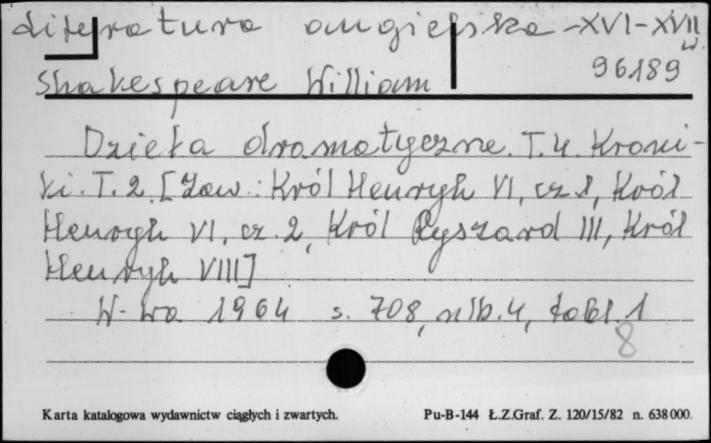 Literatura angielska - XVI-XVII w.
96189
Shakespeare William
Dzieła dramatyczne. T. 4. Kroni-
ki. T. 2. [Zaw.: Król Henryk VI, cz 1, Król
Henryk VI, cz. 2, Król Ryszard III, Król
Henryk VIII]
W-wa 1964 s. 708, nlb. 4, tabl. 1
8
Karta katalogowa wydawnictw ciągłych i zwartych. Pu-B-144 Ł.Z.Graf. Z. 120/15/82 n. 638000.